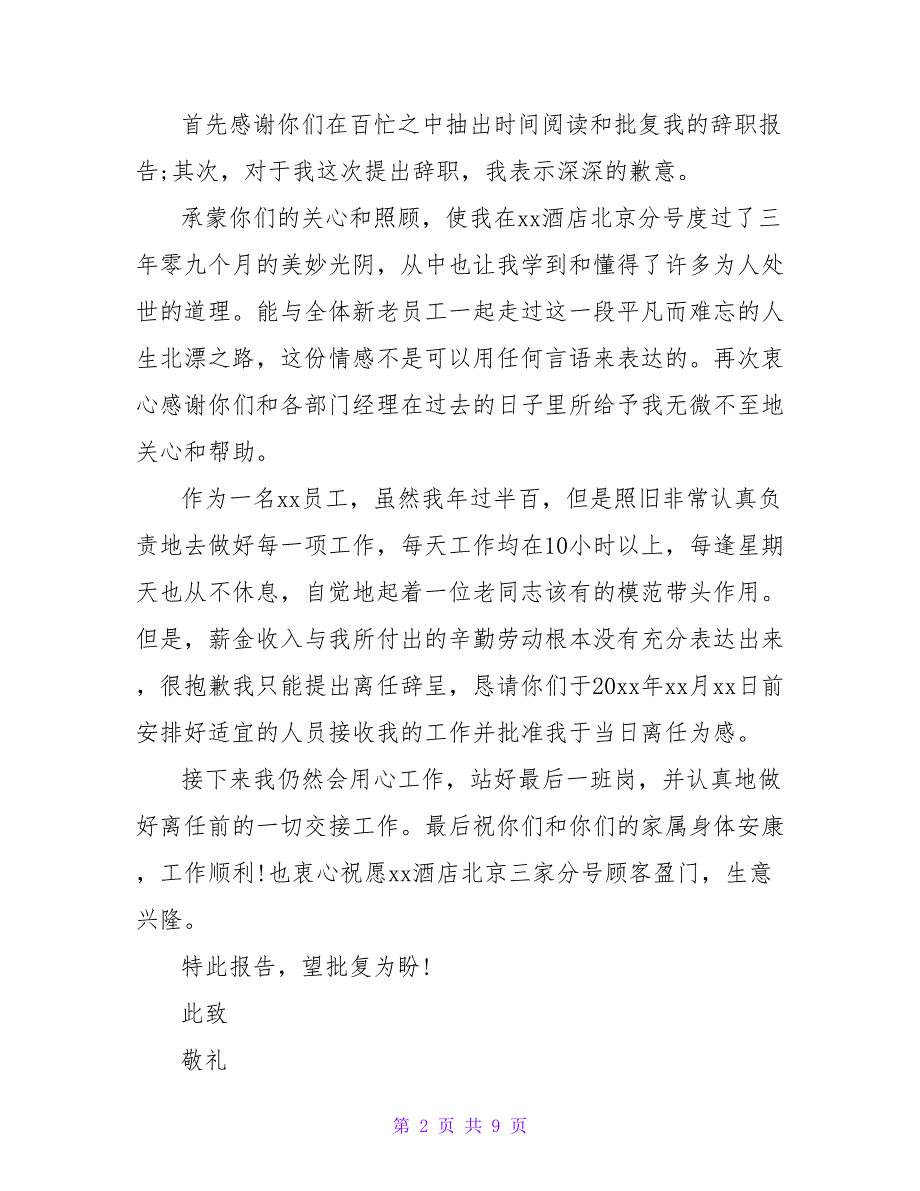 首先感谢你们在百忙之中抽出时间阅读和批复我的辞职报
告;其次，对于我这次提出辞职，我表示深深的歉意。
承蒙你们的关心和照顾，使我在xx酒店北京分号度过了三
年零九个月的美妙光阴，从中也让我学到和懂得了许多为人处
世的道理。能与全体新老员工一起走过这一段平凡而难忘的人
生北漂之路，这份情感不是可以用任何言语来表达的。再次衷
心感谢你们和各部门经理在过去的日子里所给予我无微不至地
关心和帮助。
作为一名xx员工，虽然我年过半百，但是照旧非常认真负
责地去做好每一项工作，每天工作均在10小时以上，每逢星期
天也从不休息，自觉地起着一位老同志该有的模范带头作用。
但是，薪金收入与我所付出的辛勤劳动根本没有充分表达出来
，很抱歉我只能提出离任辞呈，恳请你们于20xx年xx月xx日前
安排好适宜的人员接收我的工作并批准我于当日离任为感。
接下来我仍然会用心工作，站好最后一班岗，并认真地做
好离任前的一切交接工作。最后祝你们和你们的家属身体安康
，工作顺利!也衷心祝愿xx酒店北京三家分号顾客盈门，生意
兴隆。
特此报告，望批复为盼!
此致
敬礼
第 2 页 共 9 页